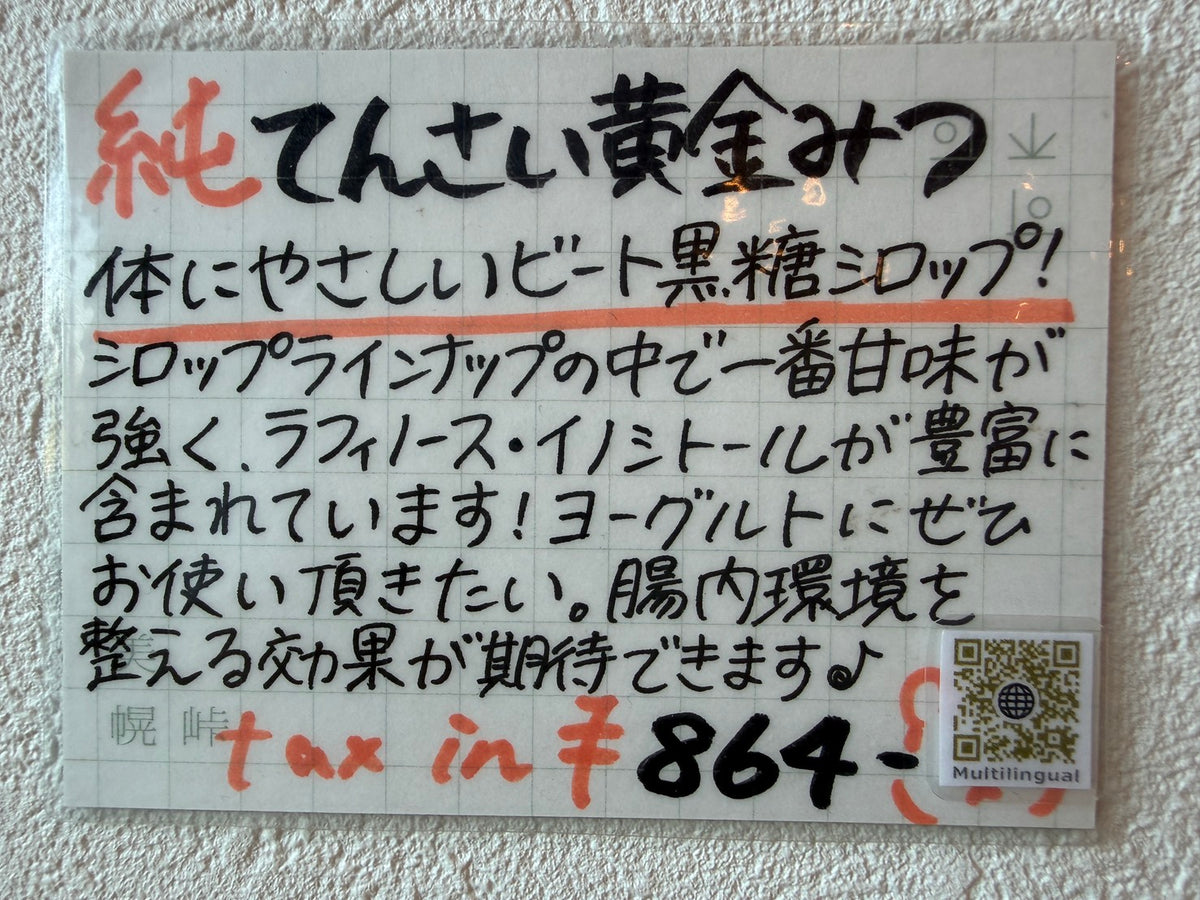 純てんさい黄金みつ
体にやさしいビート黒糖シロップ!
シロップラインナップの中で一番甘味が
強く、ラフィノース・イノシトールが豊富に
含まれています!ヨーグルトにぜひ
お使い頂きたい。腸内環境を
整える効果が期待できます♪
幌 峠
tax in ¥864-
Multilingual